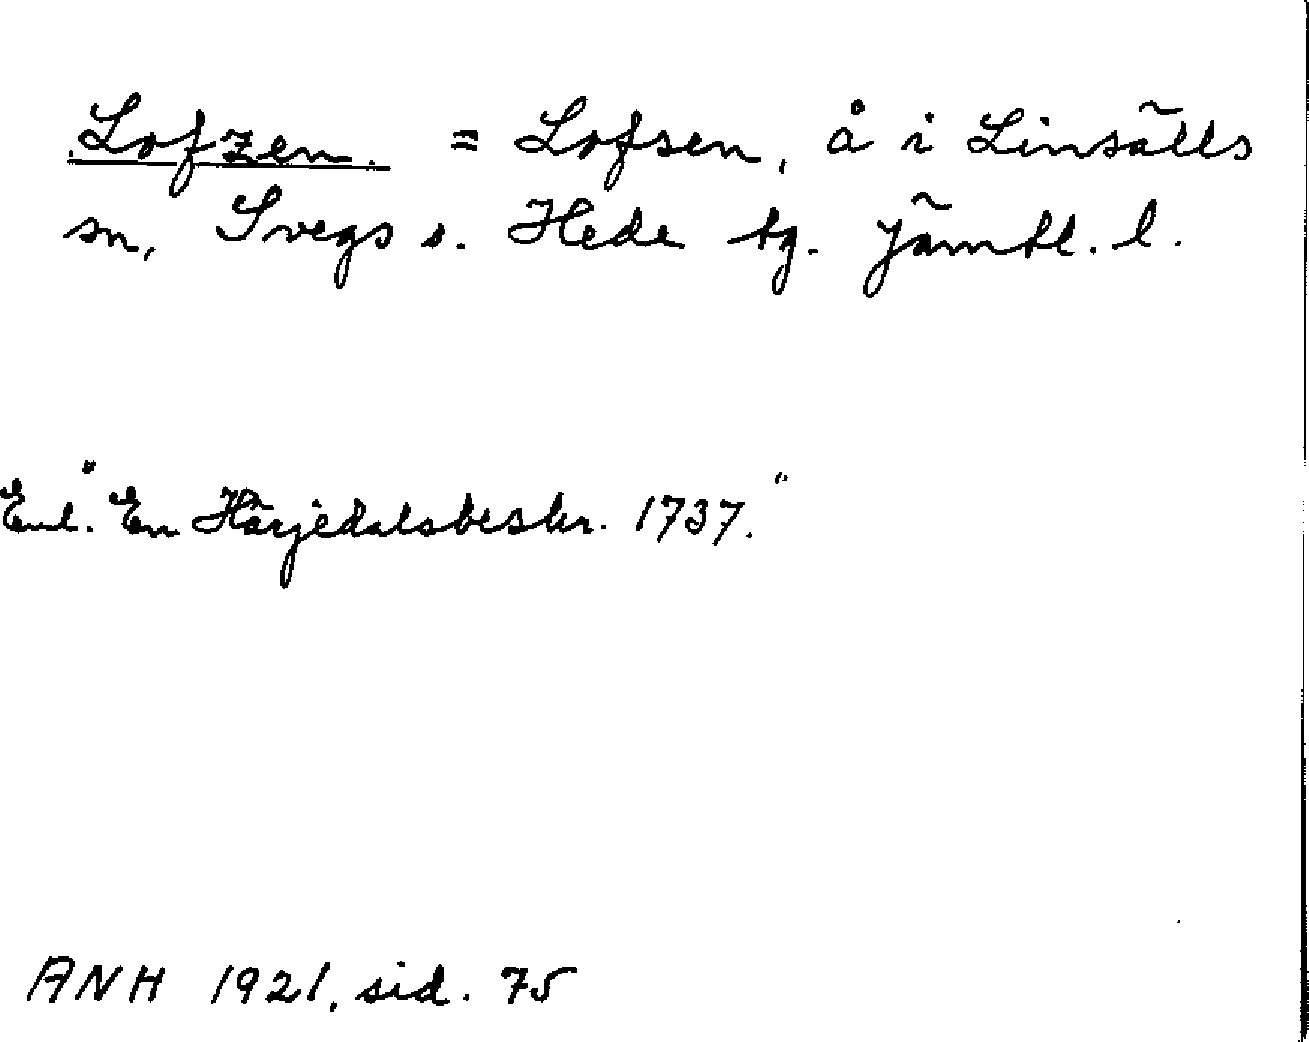 Lofzen. = Lofsen, å i Linsälls
sn, Svegs o. Hede tg. Jämtl. l.
Enl. "En Härjedalsbeskr. 1737."
ANH 1921, sid. 75